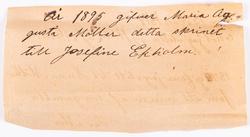 År 1895 gifver Maria Au
gusta Möller detta skrinet
till Josefine Ekholm.